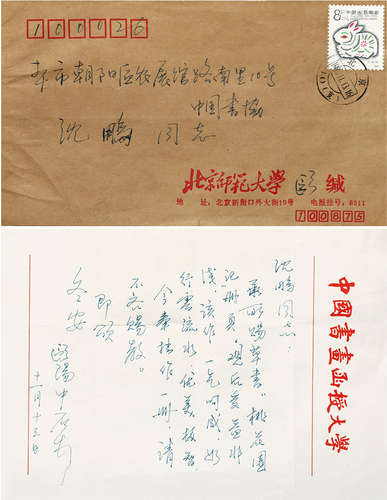 100026
8分 中国人民邮政
本市朝阳区农展馆路南里10号
中国书协
沈鹏 同志
北京师范大学 欧 缄
地 址：北京新街口外大街19号 电报挂号：8511
100875
中國書畫函授大學
沈鹏同志：
承赐草书“桃花園
记册頁”，观后受益非
浅。该作一气呵成，如
行雲流水，优美放
今奉拙作一册，请
不吝赐教。
即颂
冬安
歐陽中石
十一月十三日